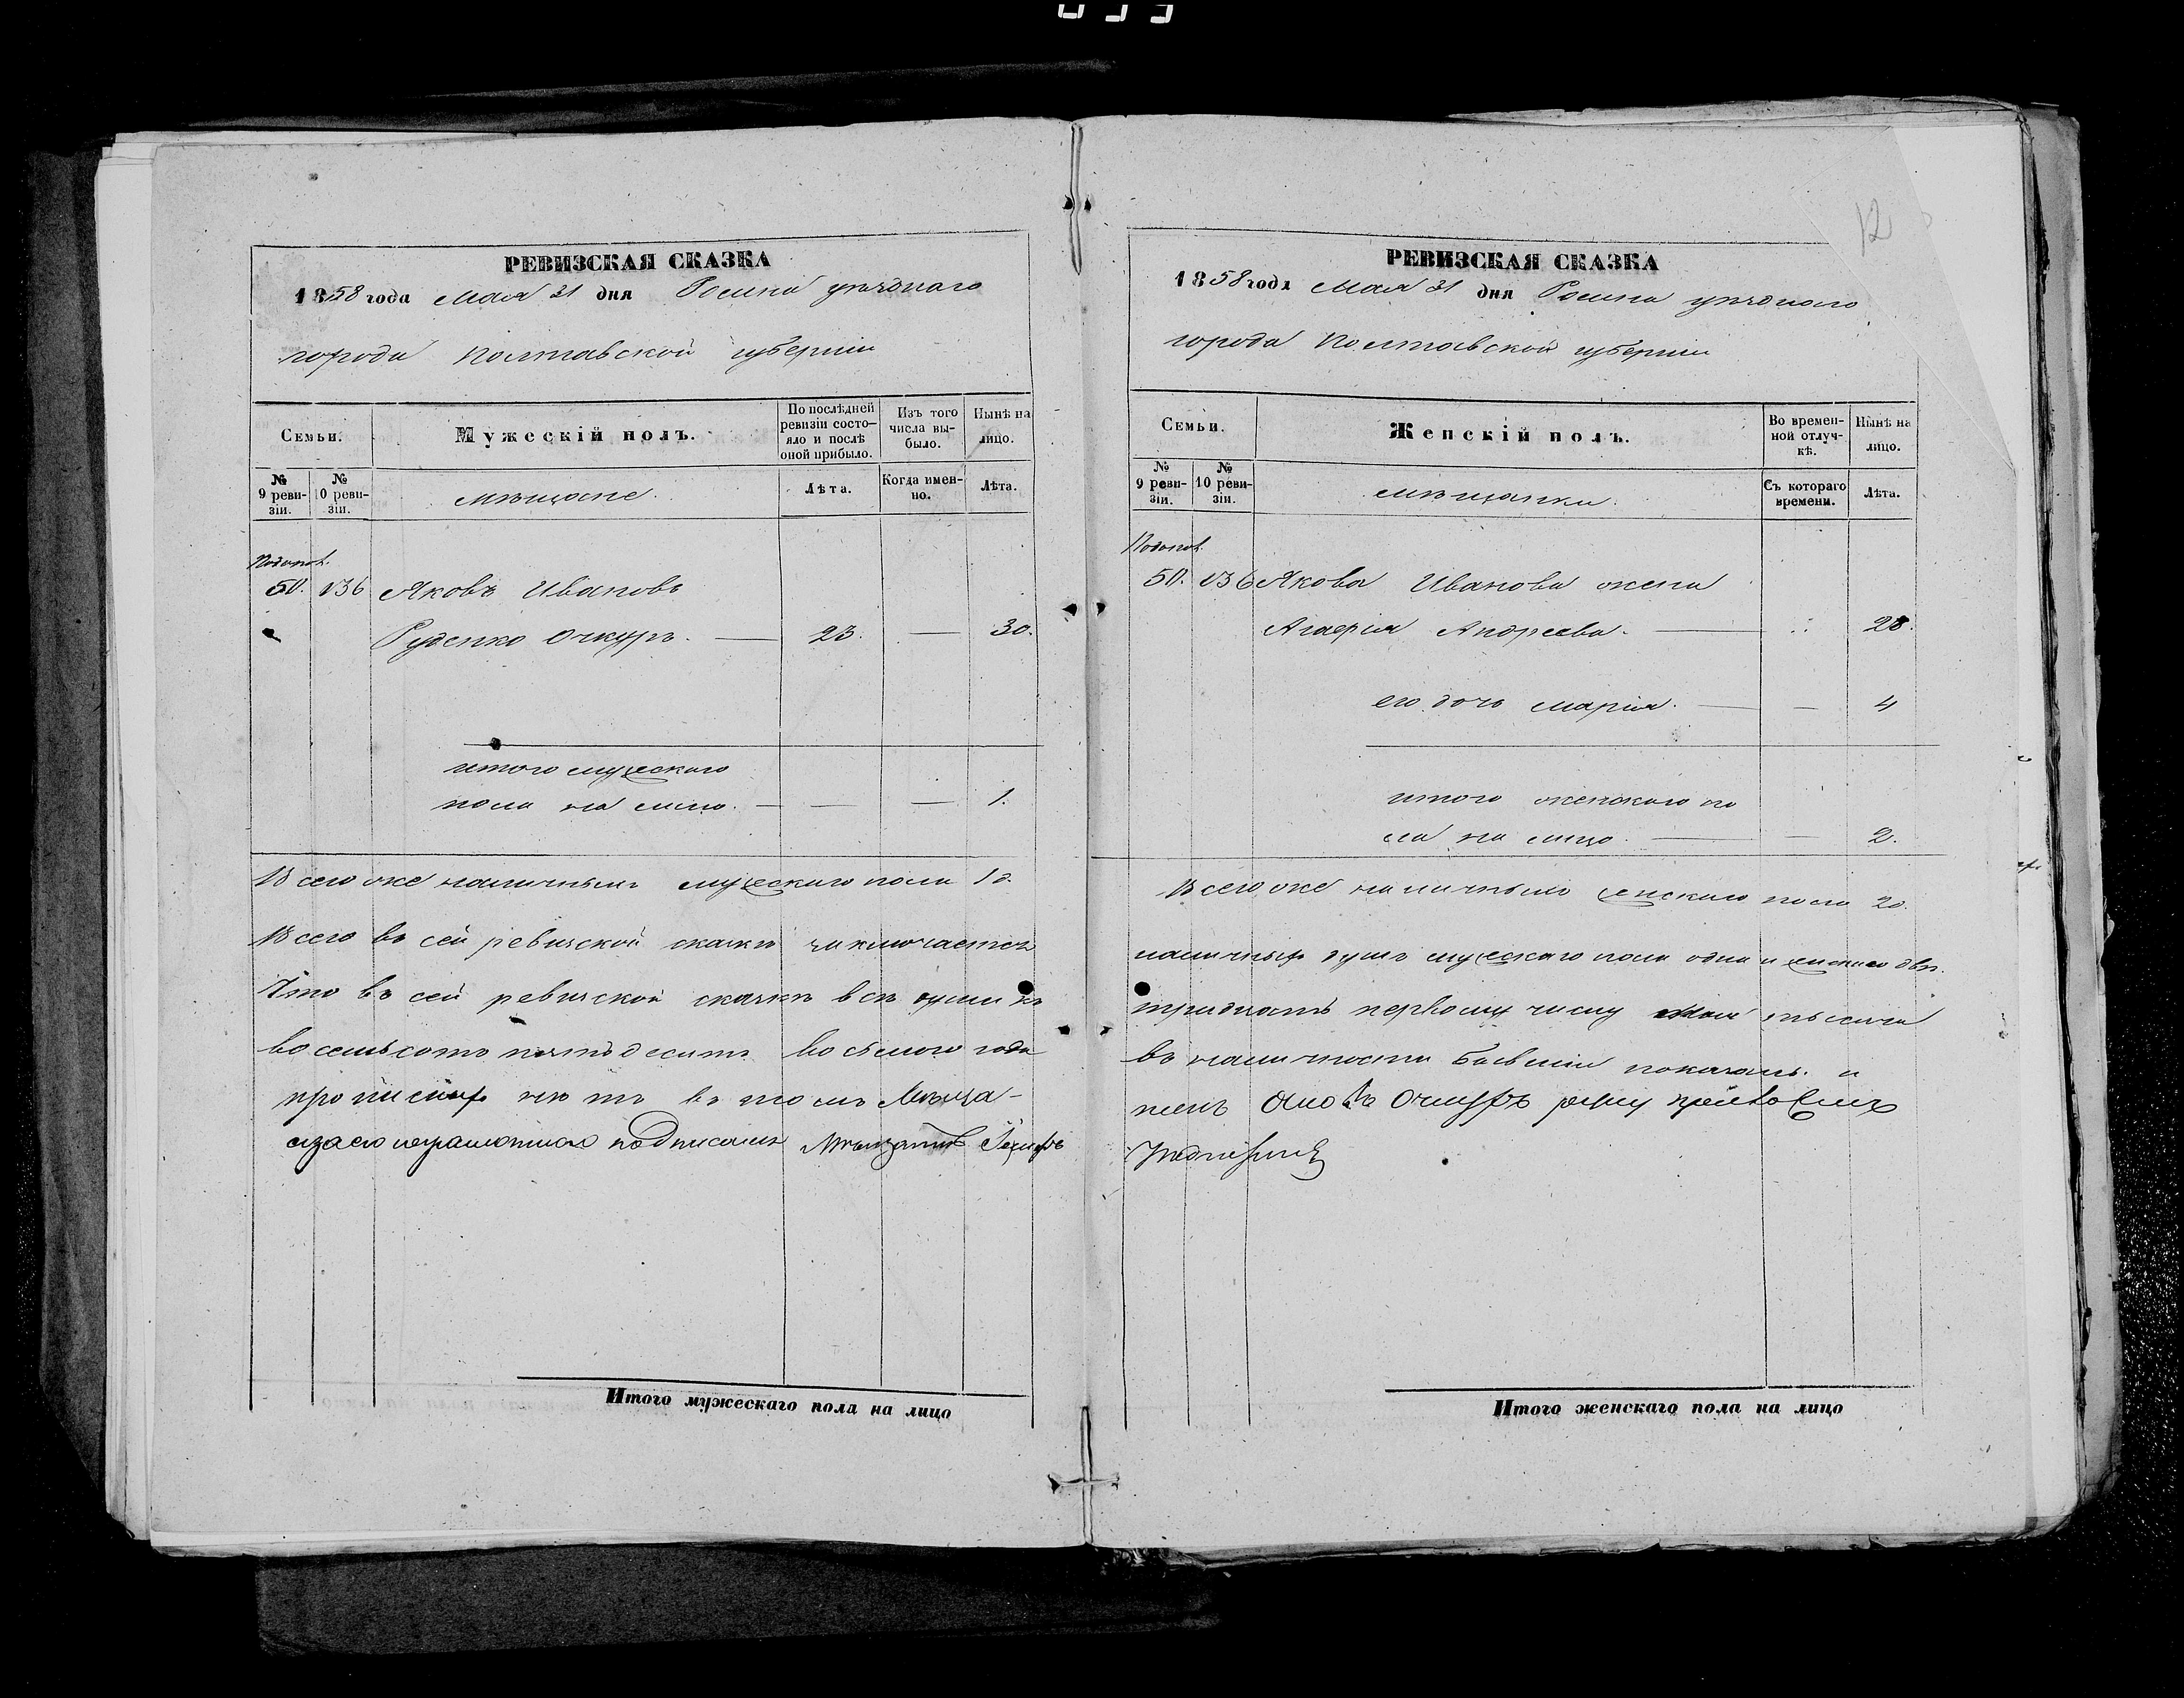 РЕВИЗСКАЯ СКАЗКА
1858 года Мая 31 дня Ромна уѣзднаго
города Полтавской губерніи
Семьи.
Мужескій полъ.
По послѣдней ревизіи состояло и послѣ оной прибыло.
Изъ того числа выбыло.
Нынѣ на лицо.
№ 9 ревизіи.
№ 10 ревизіи.
мѣщане.
Лѣта.
Когда именно.
Лѣта.
50. 136 Яковъ Ивановъ
Руденко Очкуръ. — 23. — 30.
итого мужескаго
пола на лицо. — — — 1.
Всего же наличныхъ мужескаго пола 1 д.
Всего въ сей ревизской сказкѣ заключается
Что въ сей ревизской сказкѣ всѣ души къ
восемьсотъ пятьдесятъ восьмого года
прописныхъ нѣтъ въ томъ
подписался
Итого мужескаго пола на лицо
12
РЕВИЗСКАЯ СКАЗКА
1858 года Мая 31 дня Ромна уѣзднаго
города Полтавской губерніи
Семьи.
Женскій полъ.
Во временной отлучкѣ.
Нынѣ на лицо.
№ 9 ревизіи.
№ 10 ревизіи.
мѣщанки.
Съ котораго времени.
Лѣта.
50. 136 Якова Иванова жена
Агафія Андреева. — 28.
его дочь Марія. — — 4
итого женскаго по
ла на лицо. — — 2.
Всего же наличныхъ женскаго пола 2 д.
наличныхъ душъ мужескаго пола одна и женскаго двѣ.
тридцать первому числу Мая тысяча
въ наличности бывшіе показаны. и
Очкуръ руку
Итого женскаго пола на лицо